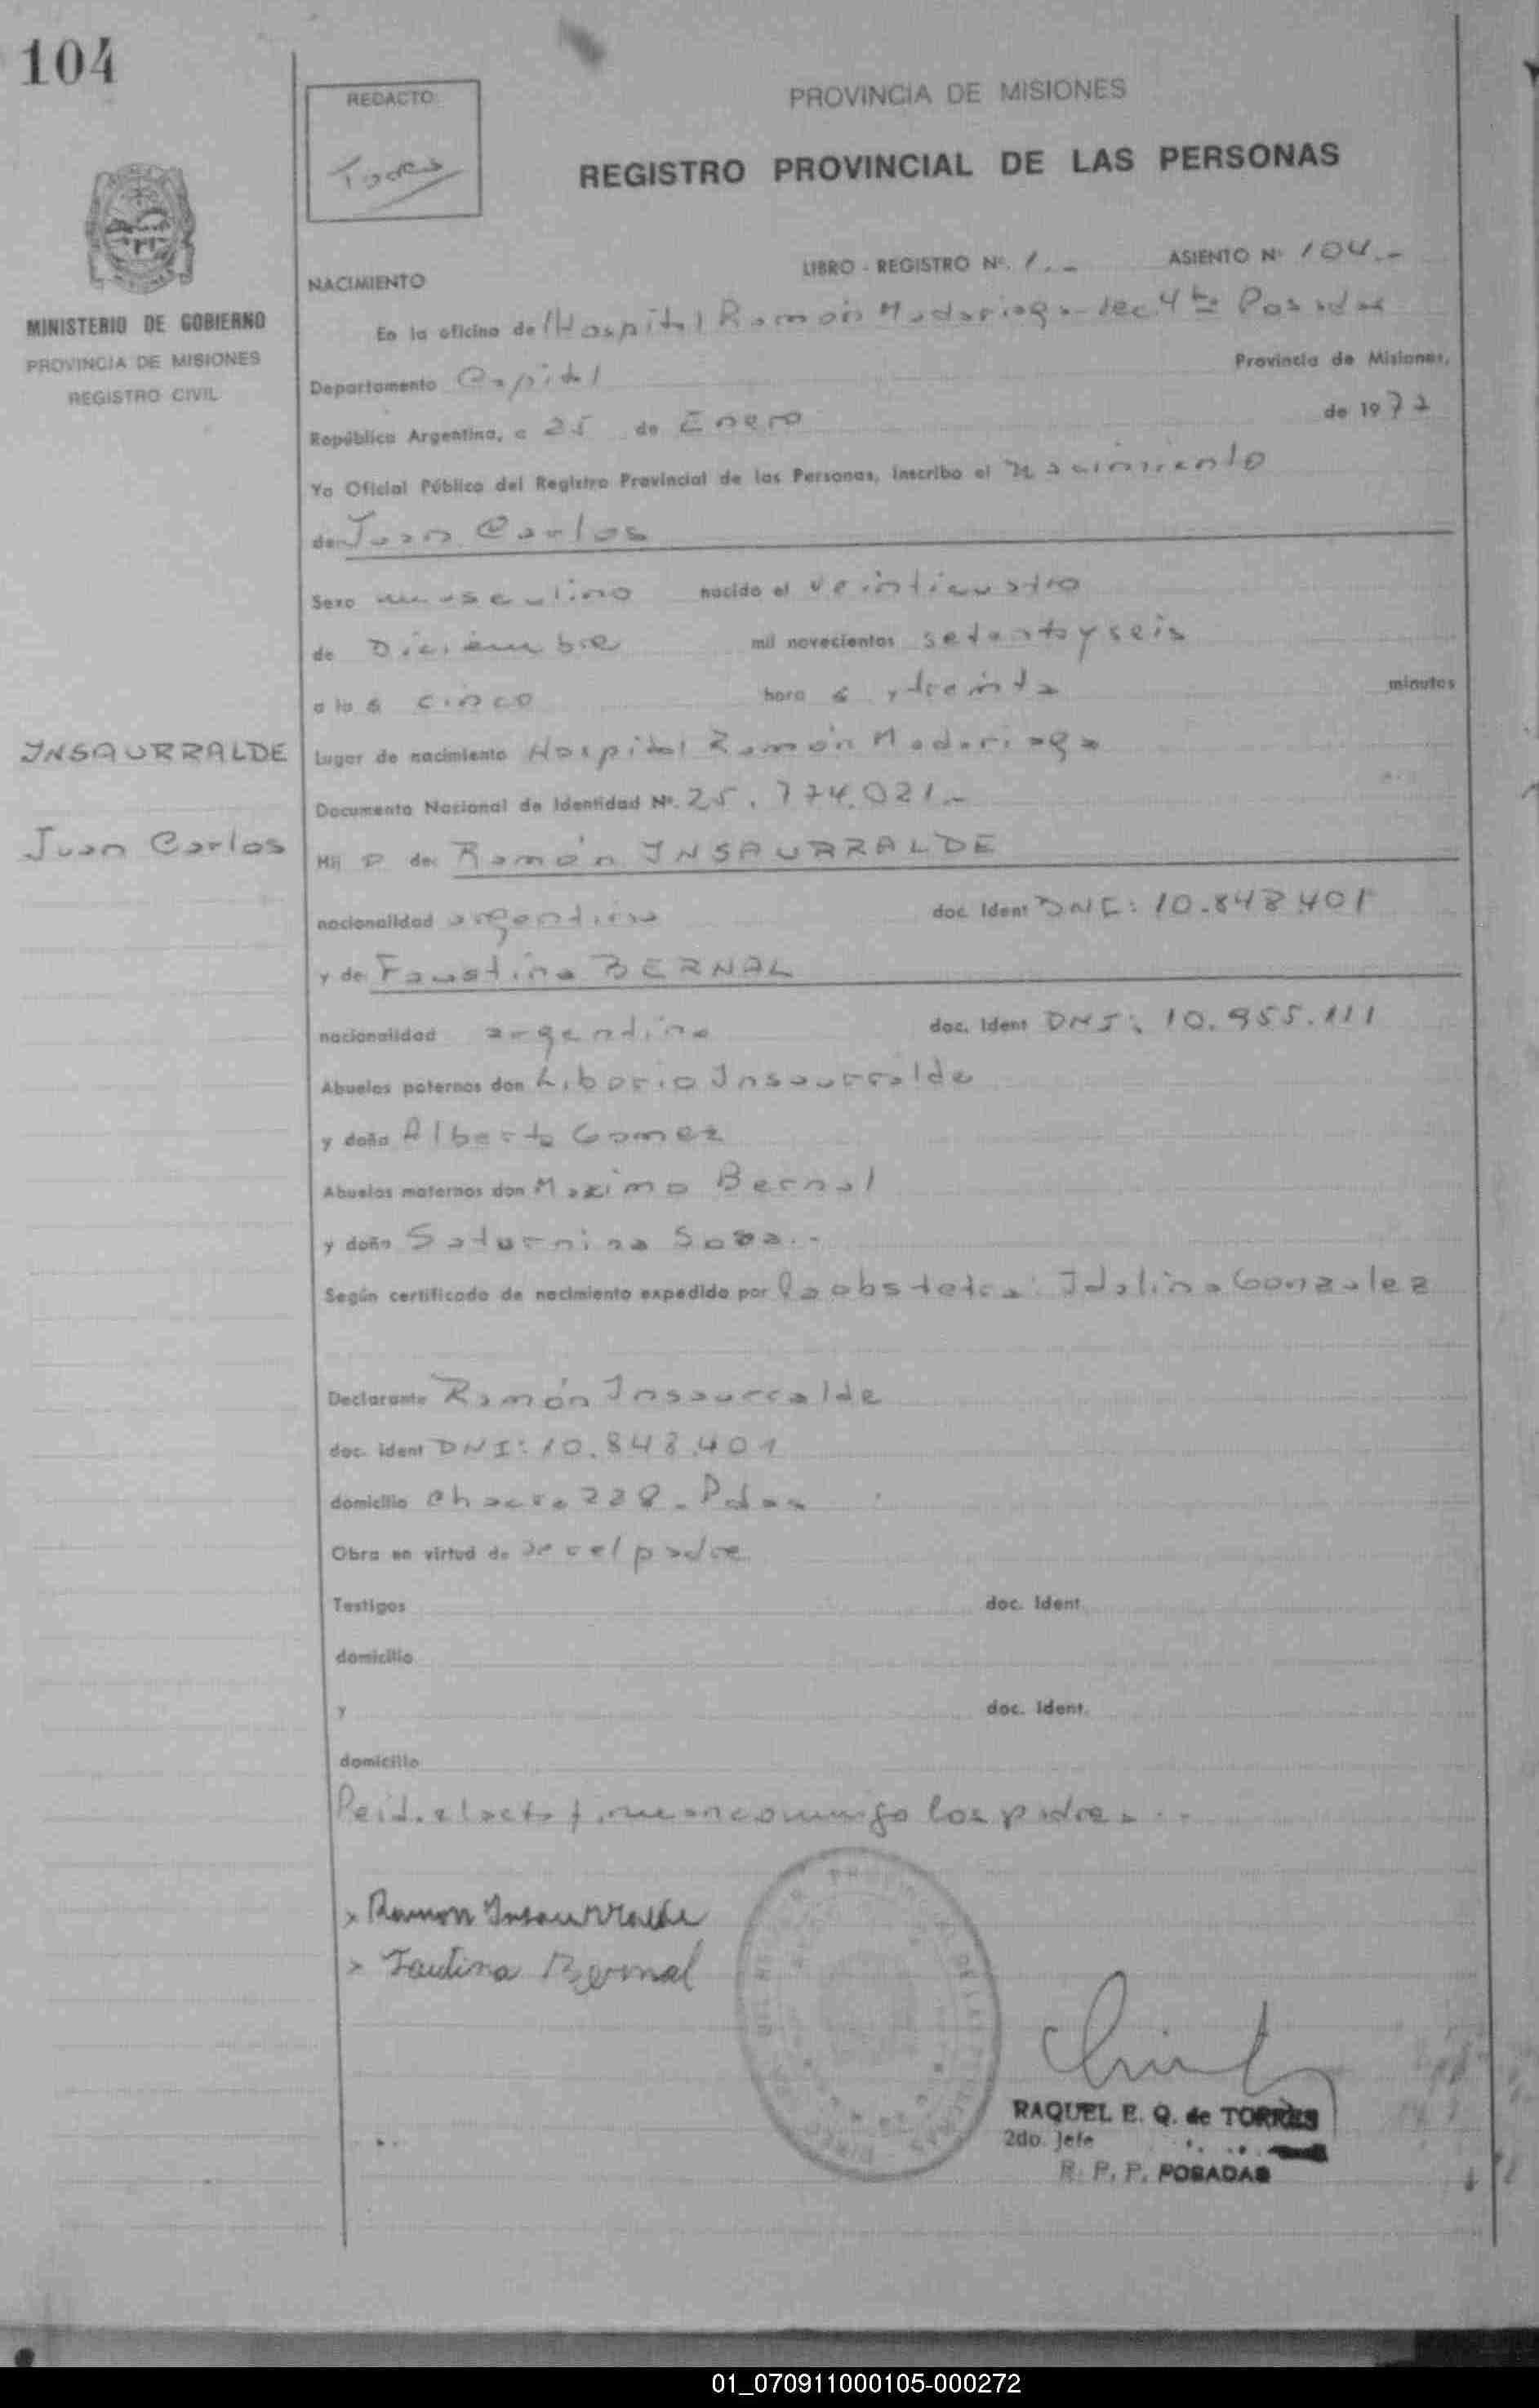 104
REDACTO:
Torres
PROVINCIA DE MISIONES
REGISTRO PROVINCIAL DE LAS PERSONAS
NACIMIENTO
LIBRO - REGISTRO Nº. 1.- ASIENTO Nº 104.-
MINISTERIO DE GOBIERNO
PROVINCIA DE MISIONES
REGISTRO CIVIL
En la oficina de Hospital Ramón Madariaga - Sec. 4ta Posadas
Departamento Capital Provincia de Misiones,
República Argentina, a 25 de Enero de 1977
Yo Oficial Público del Registro Provincial de las Personas, inscribo el Nacimiento
de: Juan Carlos
Sexo masculino nacido el veinticuatro
de Diciembre mil novecientos setenta y seis
a la s cinco hora s y treinta minutos
INSAURRALDE
Juan Carlos
Lugar de nacimiento Hospital Ramón Madariaga
Documento Nacional de Identidad Nº. 25.774.021.-
Hij o de: Ramón INSAURRALDE
nacionalidad argentina doc. Ident DNI: 10.848.401
y de: Faustina BERNAL
nacionalidad argentina doc. Ident DNI: 10.955.111
Abuelos paternos don Liborio Insaurralde
y doña Alberta Gomez
Abuelos maternos don Maximo Bernal
y doña Saturnina Sosa.-
Según certificado de nacimiento expedido por la obstetra: Idalina Gonzalez
Declarante Ramón Insaurralde
doc. ident DNI: 10.848.401
domicilio Chacra 228 - Pdas
Obra en virtud de ser el padre
Testigos doc. Ident.
domicilio
y doc. Ident.
domicilio
Leida el acta firman conmigo los padres.-
x Ramon Insaurralde
x Faustina Bernal
RAQUEL E. Q. de TORRES
2do. Jefe
R. P. P. POSADAS
01_070911000105-000272